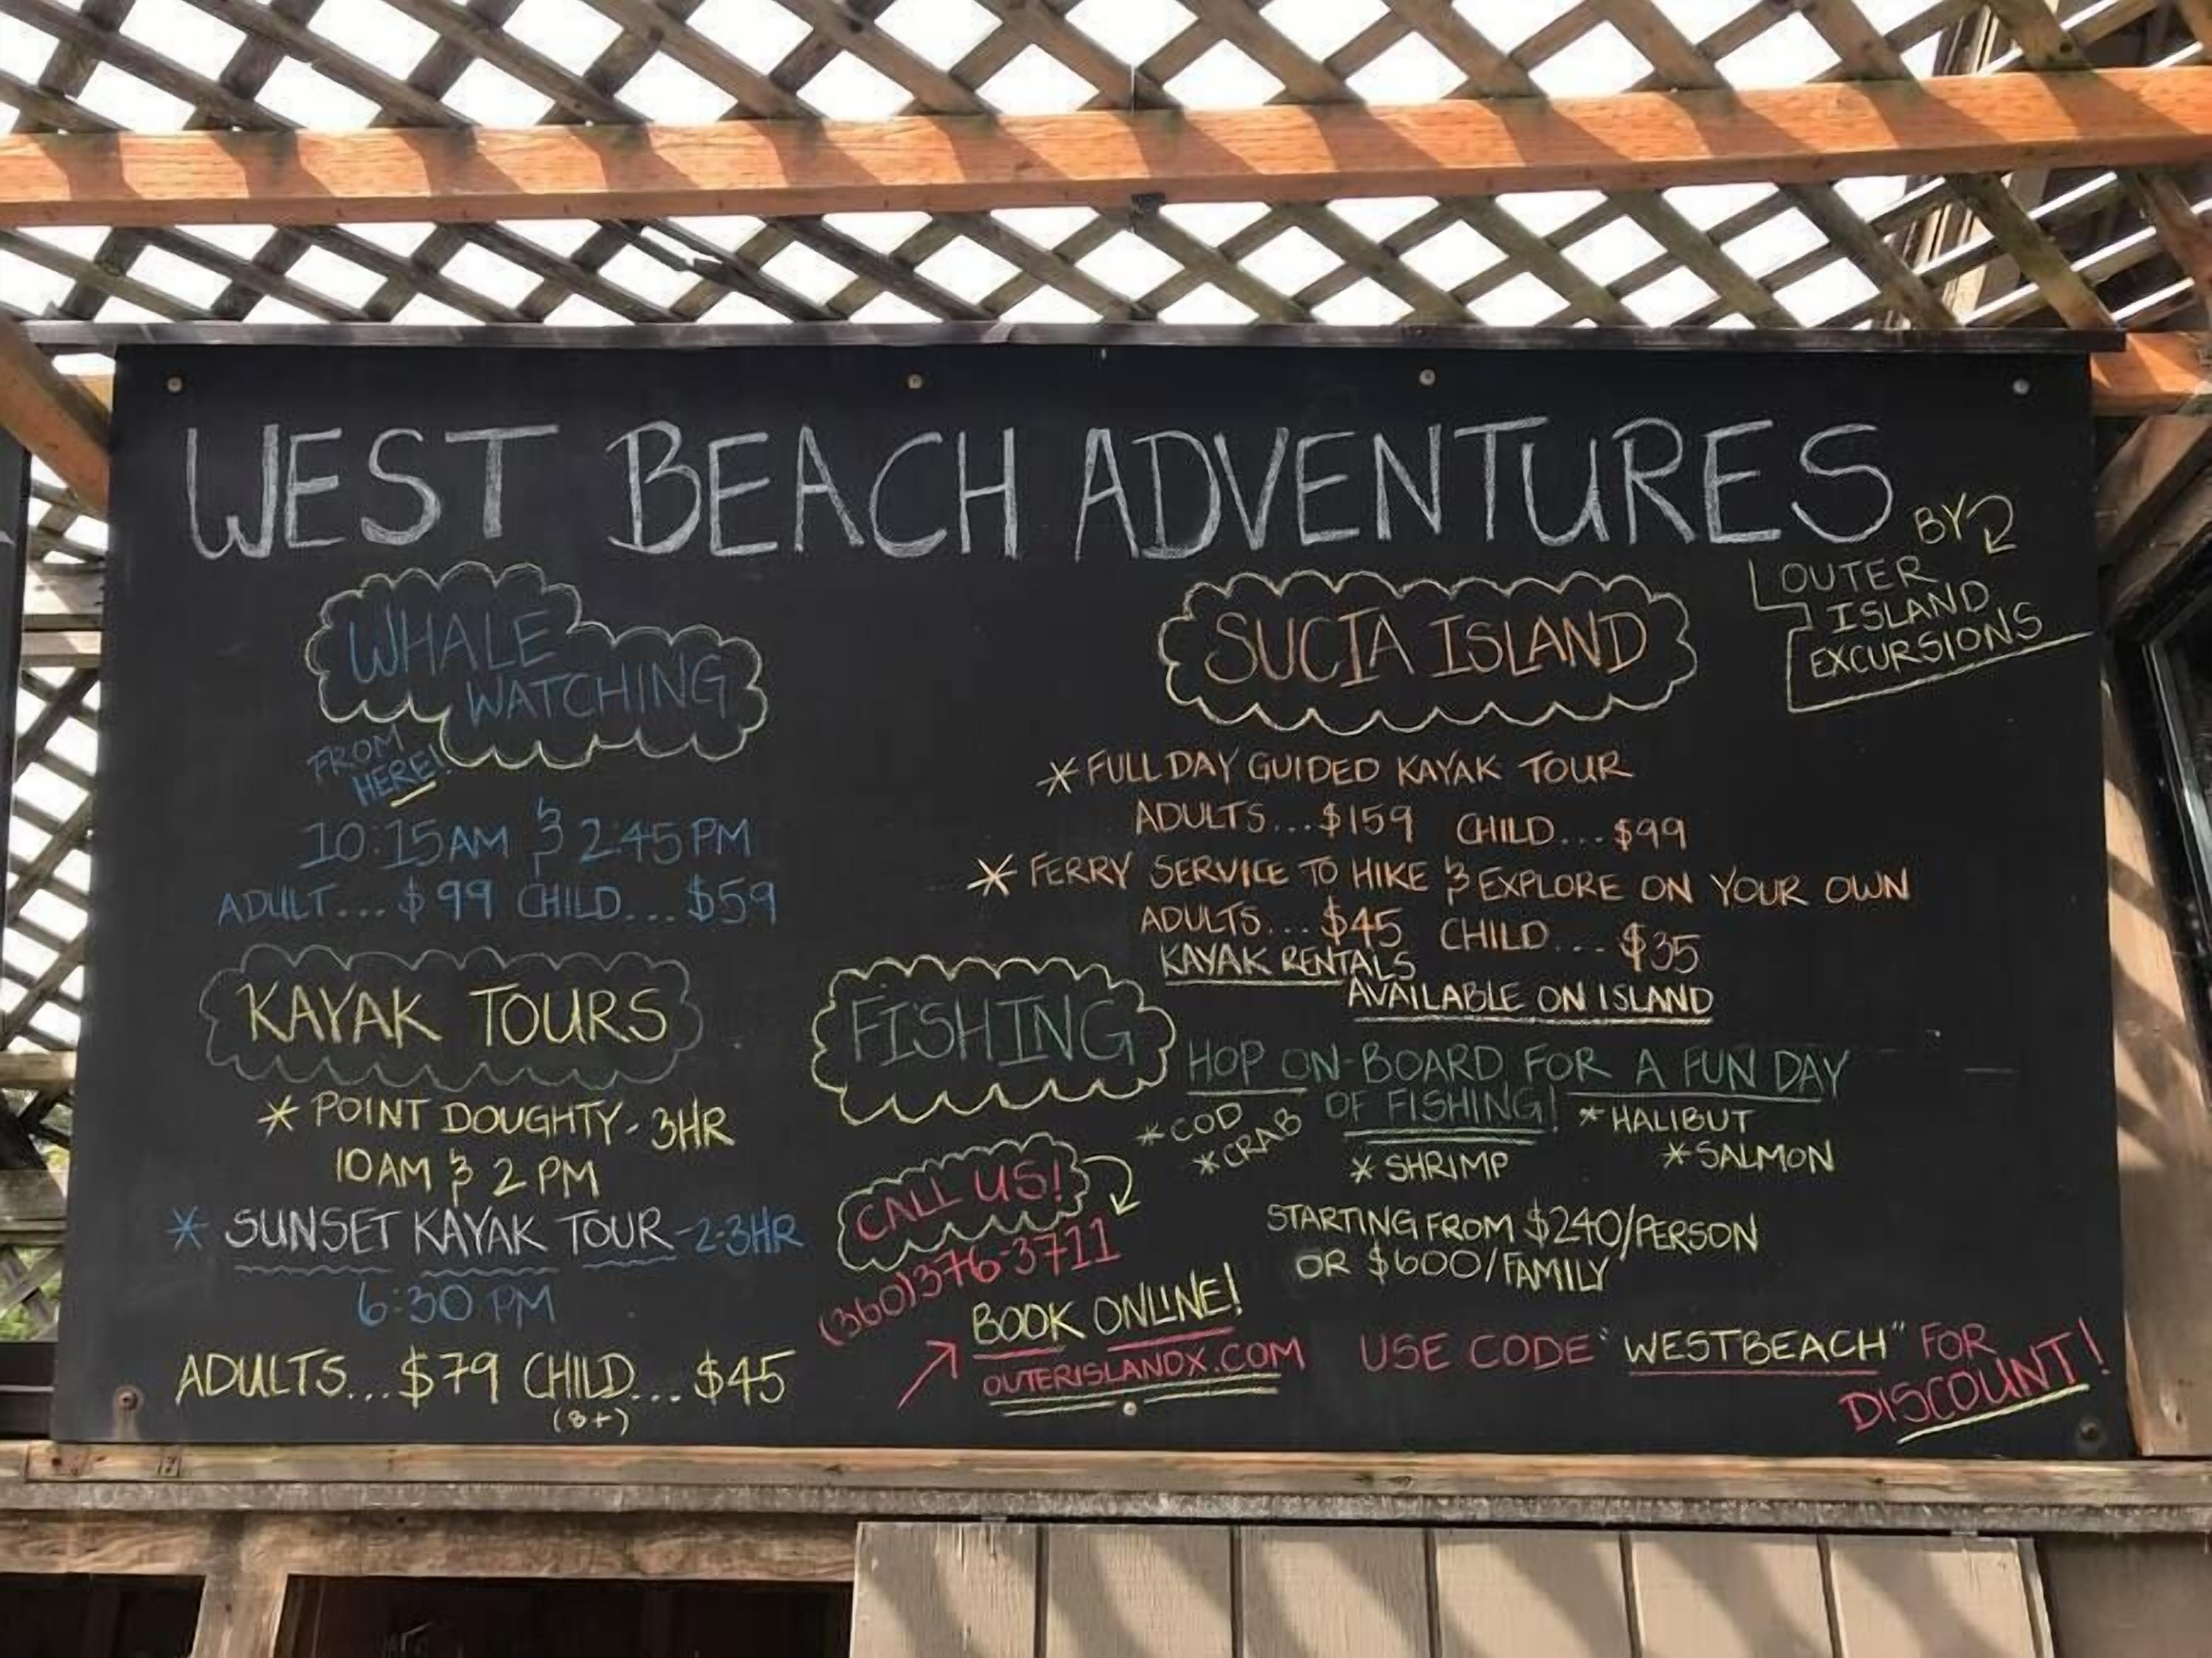 WEST BEACH ADVENTURES
BY
OUTER
ISLAND
EXCURSIONS
WHALE
WATCHING
FROM
HERE!
10:15AM & 2:45 PM
ADULT... $99 CHILD... $59
KAYAK TOURS
* POINT DOUGHTY - 3HR
10AM & 2 PM
* SUNSET KAYAK TOUR - 2-3HR
6:30 PM
ADULTS... $79 CHILD... $45
(8+)
SUCIA ISLAND
* FULL DAY GUIDED KAYAK TOUR
ADULTS... $159 CHILD... $99
* FERRY SERVICE TO HIKE & EXPLORE ON YOUR OWN
ADULTS... $45 CHILD... $35
KAYAK RENTALS
AVAILABLE ON ISLAND
FISHING
HOP ON-BOARD FOR A FUN DAY
OF FISHING!
* COD
* CRAB
* SHRIMP
* HALIBUT
* SALMON
STARTING FROM $240/PERSON
OR $600/FAMILY
CALL US!
(360)376-3711
BOOK ONLINE!
OUTERISLANDX.COM
USE CODE "WESTBEACH" FOR
DISCOUNT!